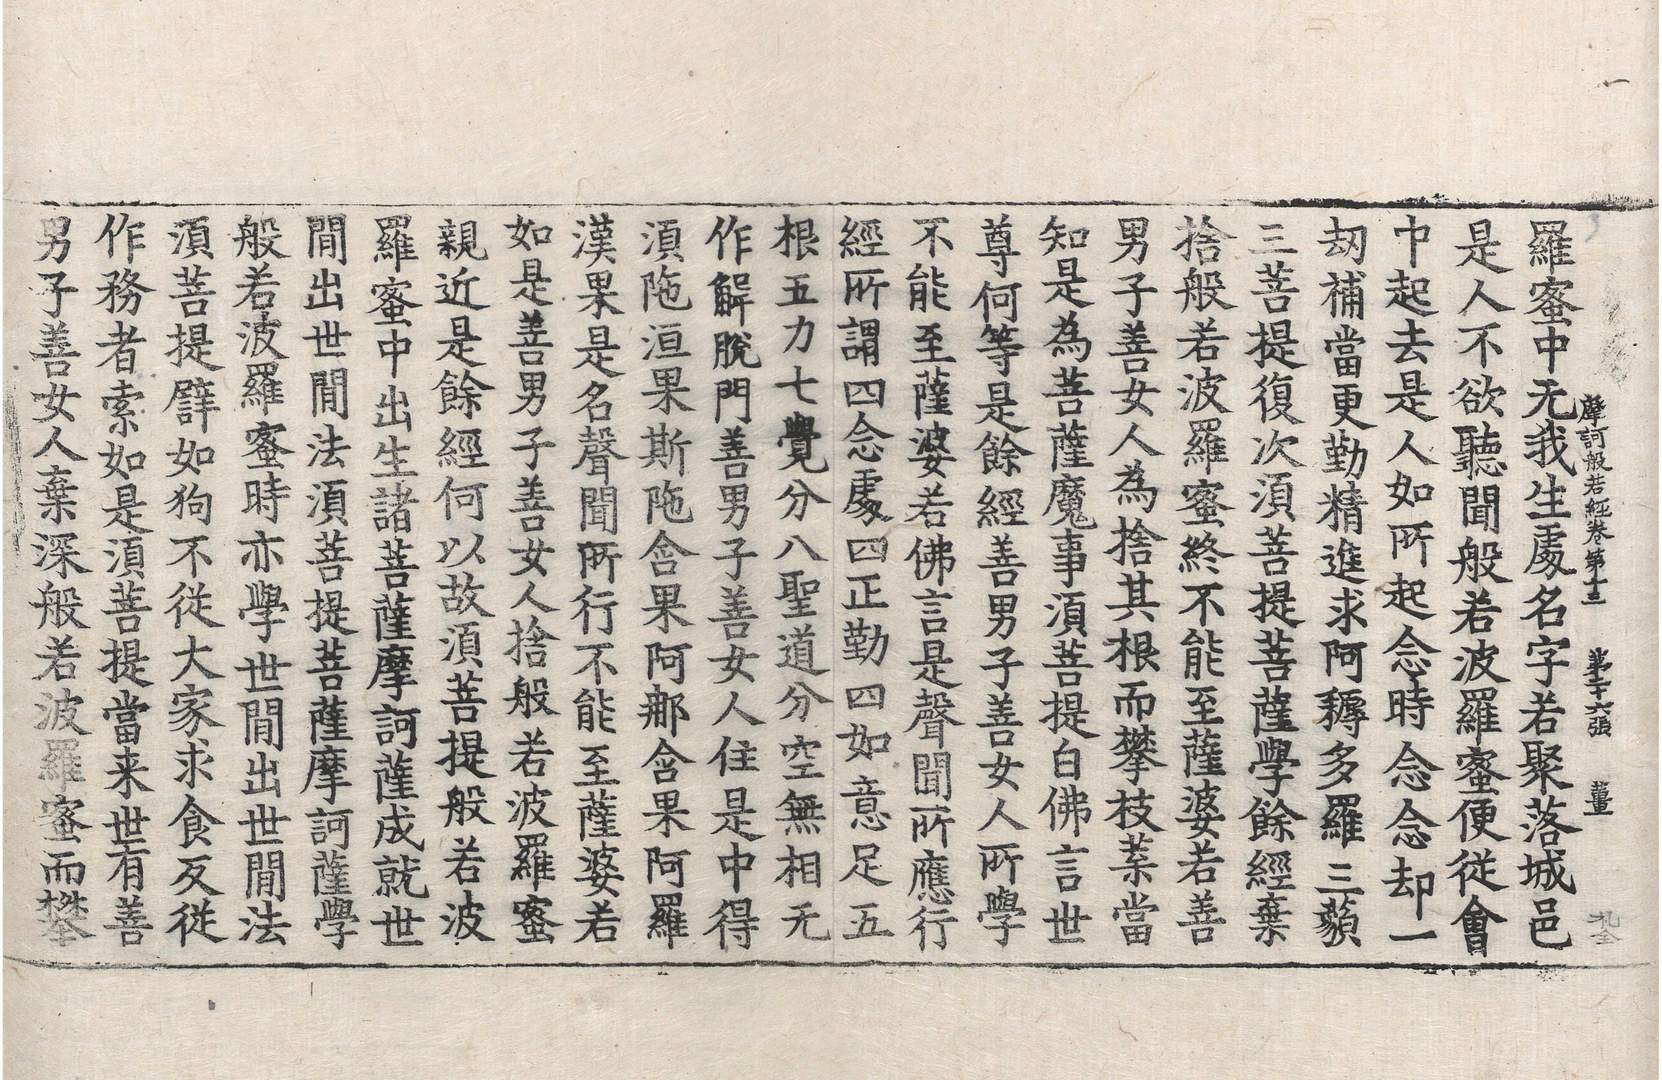 摩訶般若經卷第十三　第二十六張　董
羅蜜中无我生處名字若聚落城邑
是人不欲聽聞般若波羅蜜便從會
中起去是人如所起念時念念却一
劫補當更勤精進求阿耨多羅三藐
三菩提復次須菩提菩薩學餘經棄
捨般若波羅蜜終不能至薩婆若善
男子善女人為捨其根而攀枝葉當
知是為菩薩魔事須菩提白佛言世
尊何等是餘經善男子善女人所學
不能至薩婆若佛言是聲聞所應行
經所謂四念處四正勤四如意足五
根五力七覺分八聖道分空無相无
作解脫門善男子善女人住是中得
須陁洹果斯陁含果阿那含果阿羅
漢果是名聲聞所行不能至薩婆若
如是善男子善女人捨般若波羅蜜
親近是餘經何以故須菩提般若波
羅蜜中出生諸菩薩摩訶薩成就世
閒出世閒法須菩提菩薩摩訶薩學
般若波羅蜜時亦學世閒出世閒法
須菩提譬如狗不從大家求食反從
作務者索如是須菩提當来世有善
男子善女人棄深般若波羅蜜而攀